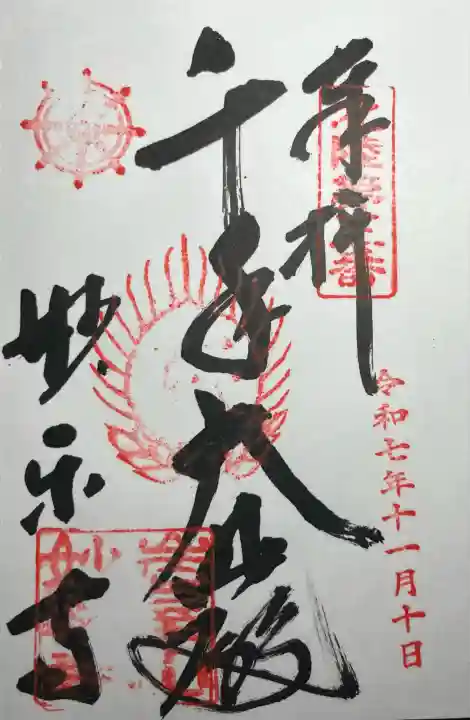 奉拝
令和七年十一月十日
千手大悲殿
妙楽寺